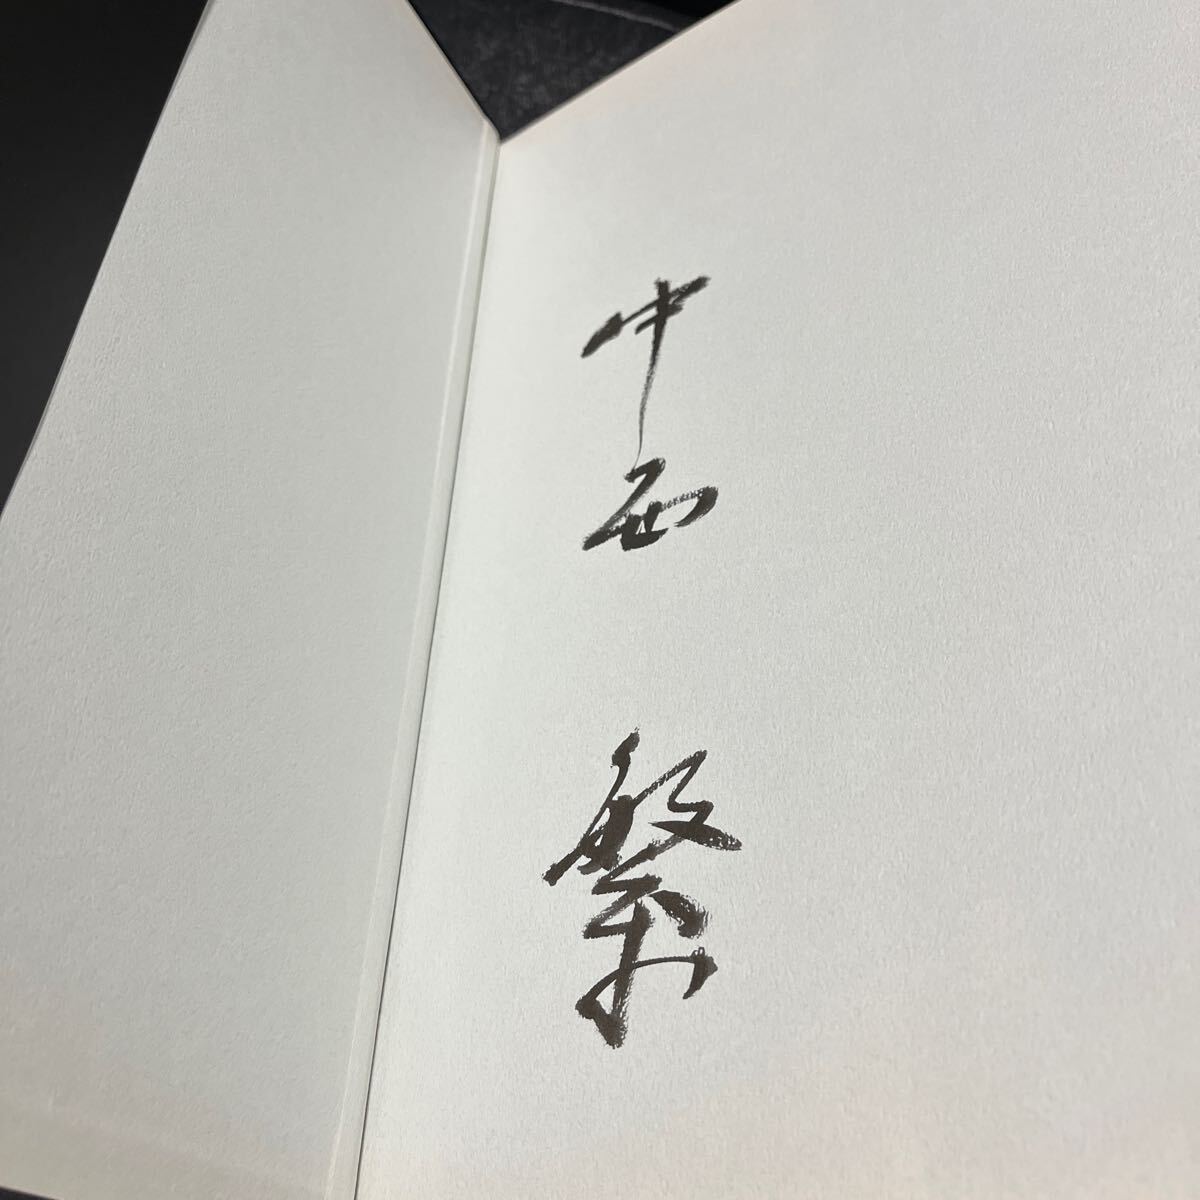 中西 繁